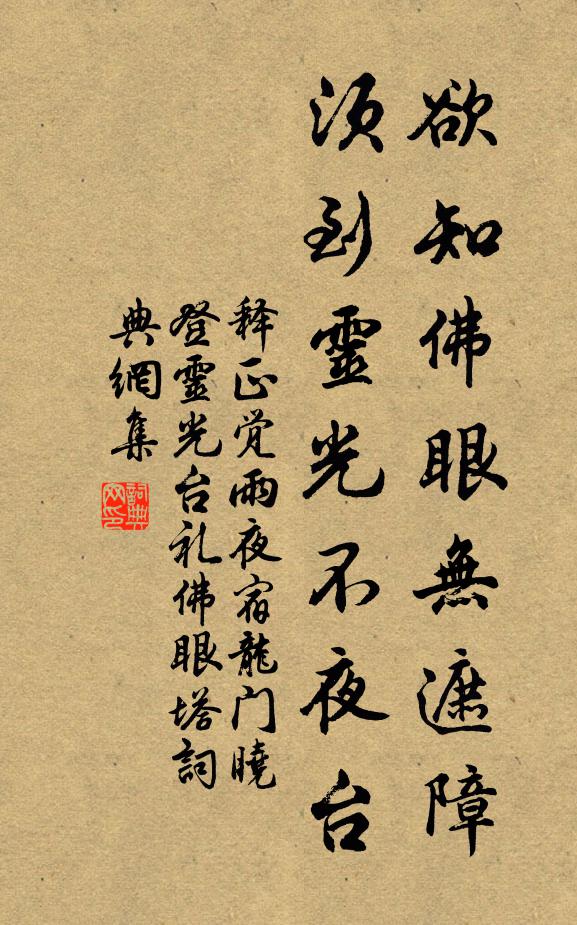 欲知佛眼無遮障
須到靈光不夜台
释正觉雨夜宿龍门曉
登靈光台礼佛眼塔詞
典網集
詞典
网印